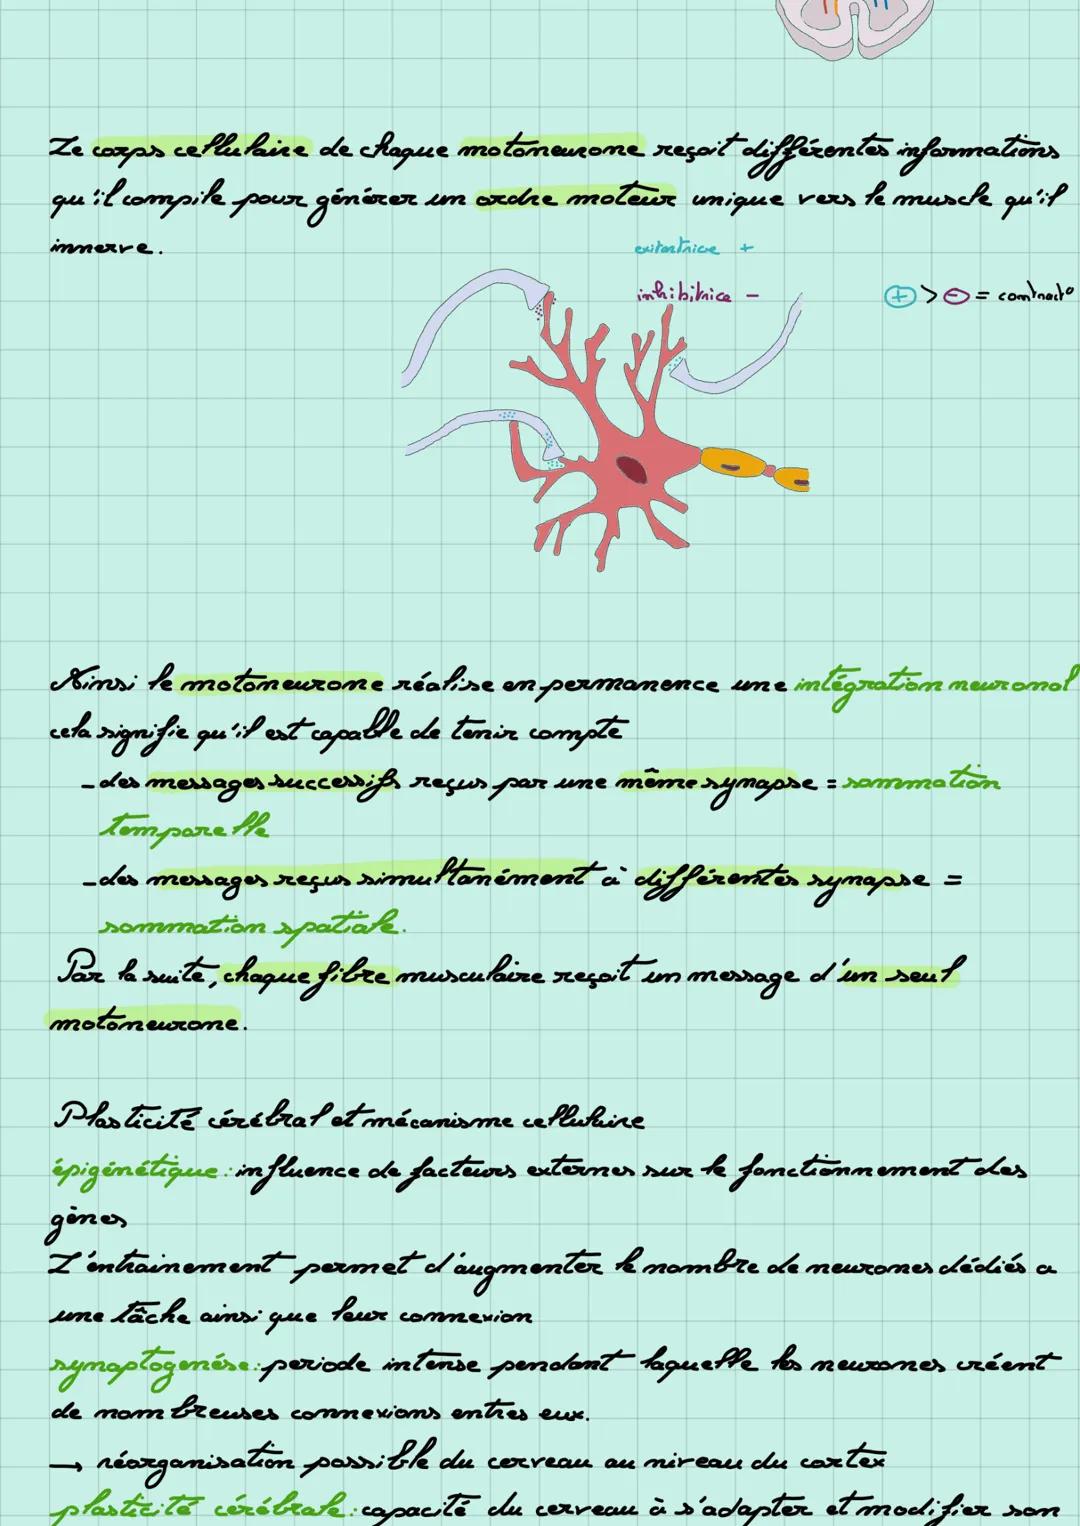 Le corps cellulaire de chaque motoneurone reçoit différentes informations
qu'il compile pour générer un ordre moteur unique vers le muscle qu'il
innerve.
exitatrice +
inhibitrice -
+ > - = contract°
Ainsi le motoneurone réalise en permanence une intégration neuronal
cela signifie qu'il est capable de tenir compte
- des messages successifs reçus par une même synapse = sommation
temporelle
- des messages reçus simultanément à différentes synapse =
sommation spatiale.
Par la suite, chaque fibre musculaire reçoit un message d'un seul
motoneurone.
Plasticité cérébral et mécanisme cellulaire
épigénétique : influence de facteurs externes sur le fonctionnement des
gènes
L'entrainement permet d'augmenter le nombre de neurones dédiés a
une tâche ainsi que leur connexion
synaptogenése : periode intense pendant laquelle les neurones créent
de nombreuses connexions entres eux.
→ réorganisation possible du cerveau au niveau du cortex
plasticité cérébrale : capacité du cerveau à s'adapter et modifier son